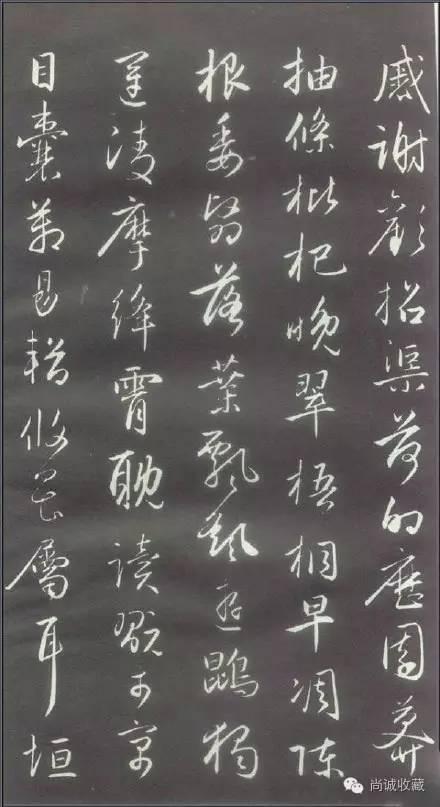 慼謝歡招渠荷的歷園莽
抽條枇杷晚翠梧桐早凋陳
根委翳落葉飄颻遊鵾獨
運凌摩絳霄耽讀翫市寓
目囊箱易輶攸畏屬耳垣
尚诚收藏